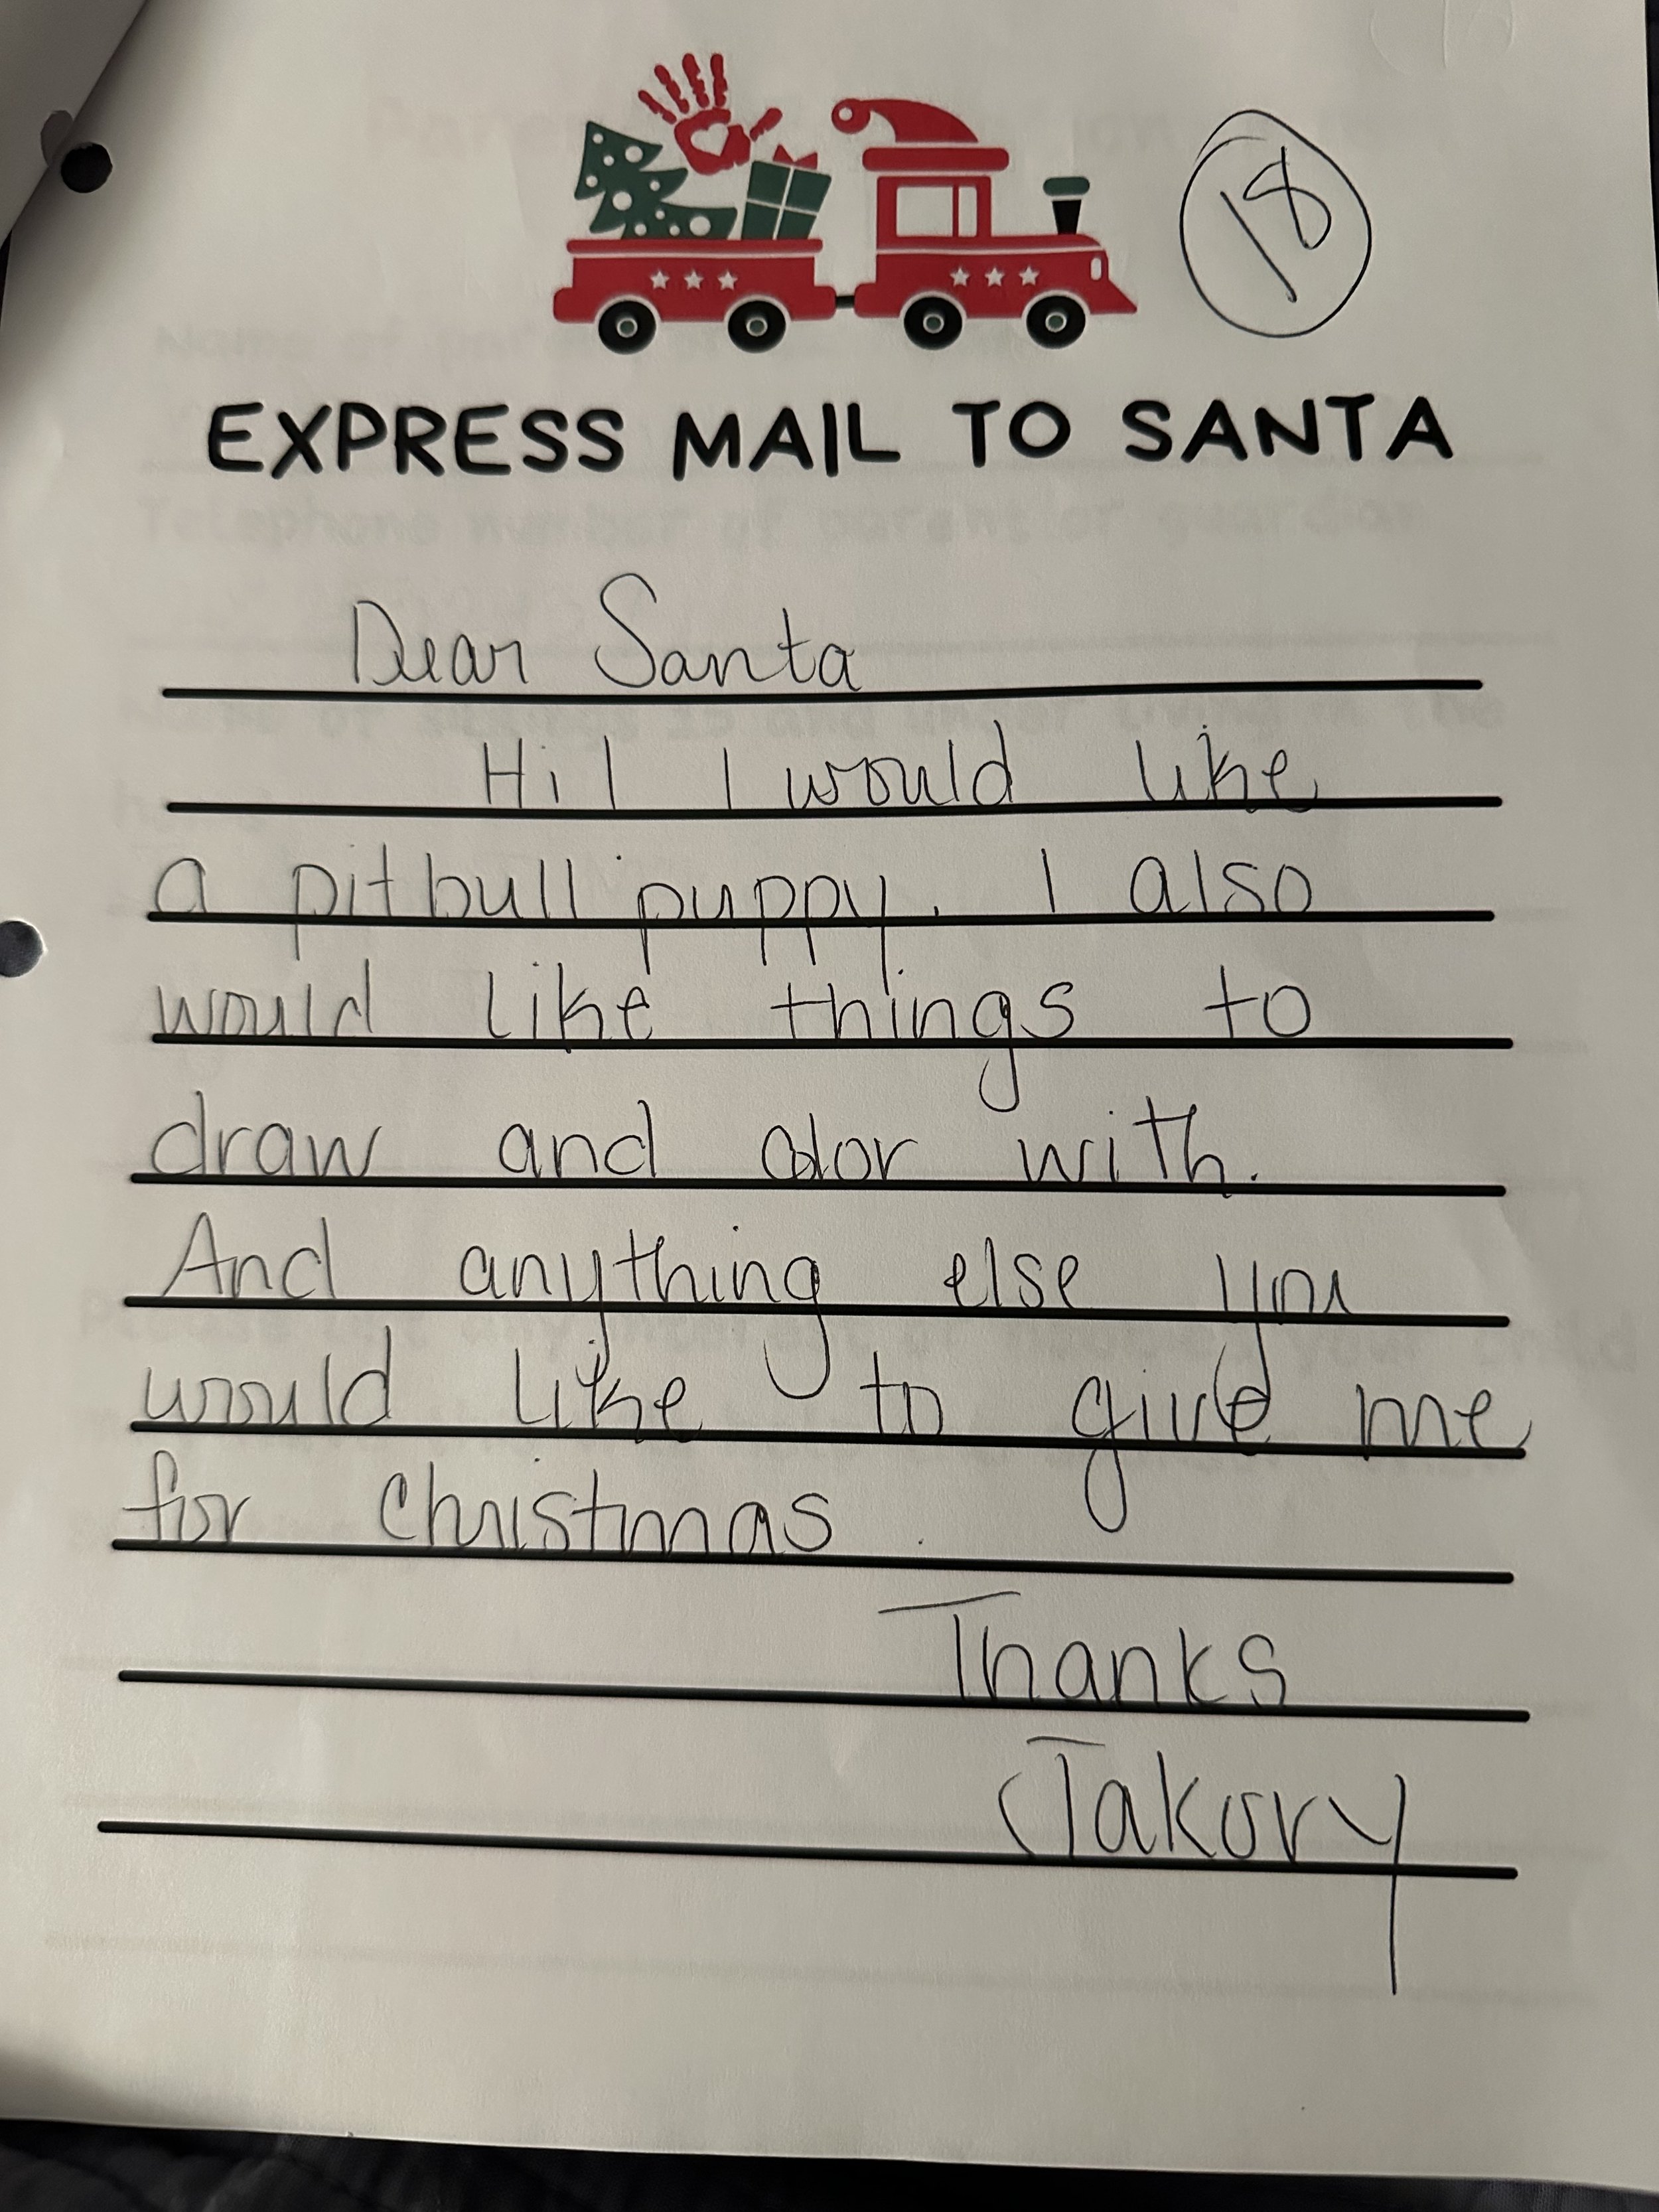 18
EXPRESS MAIL TO SANTA
Dear Santa
Hi! I would like
a pitbull puppy. I also
would like things to
draw and color with.
And anything else you
would like to give me
for Christmas.
Thanks
Jakory